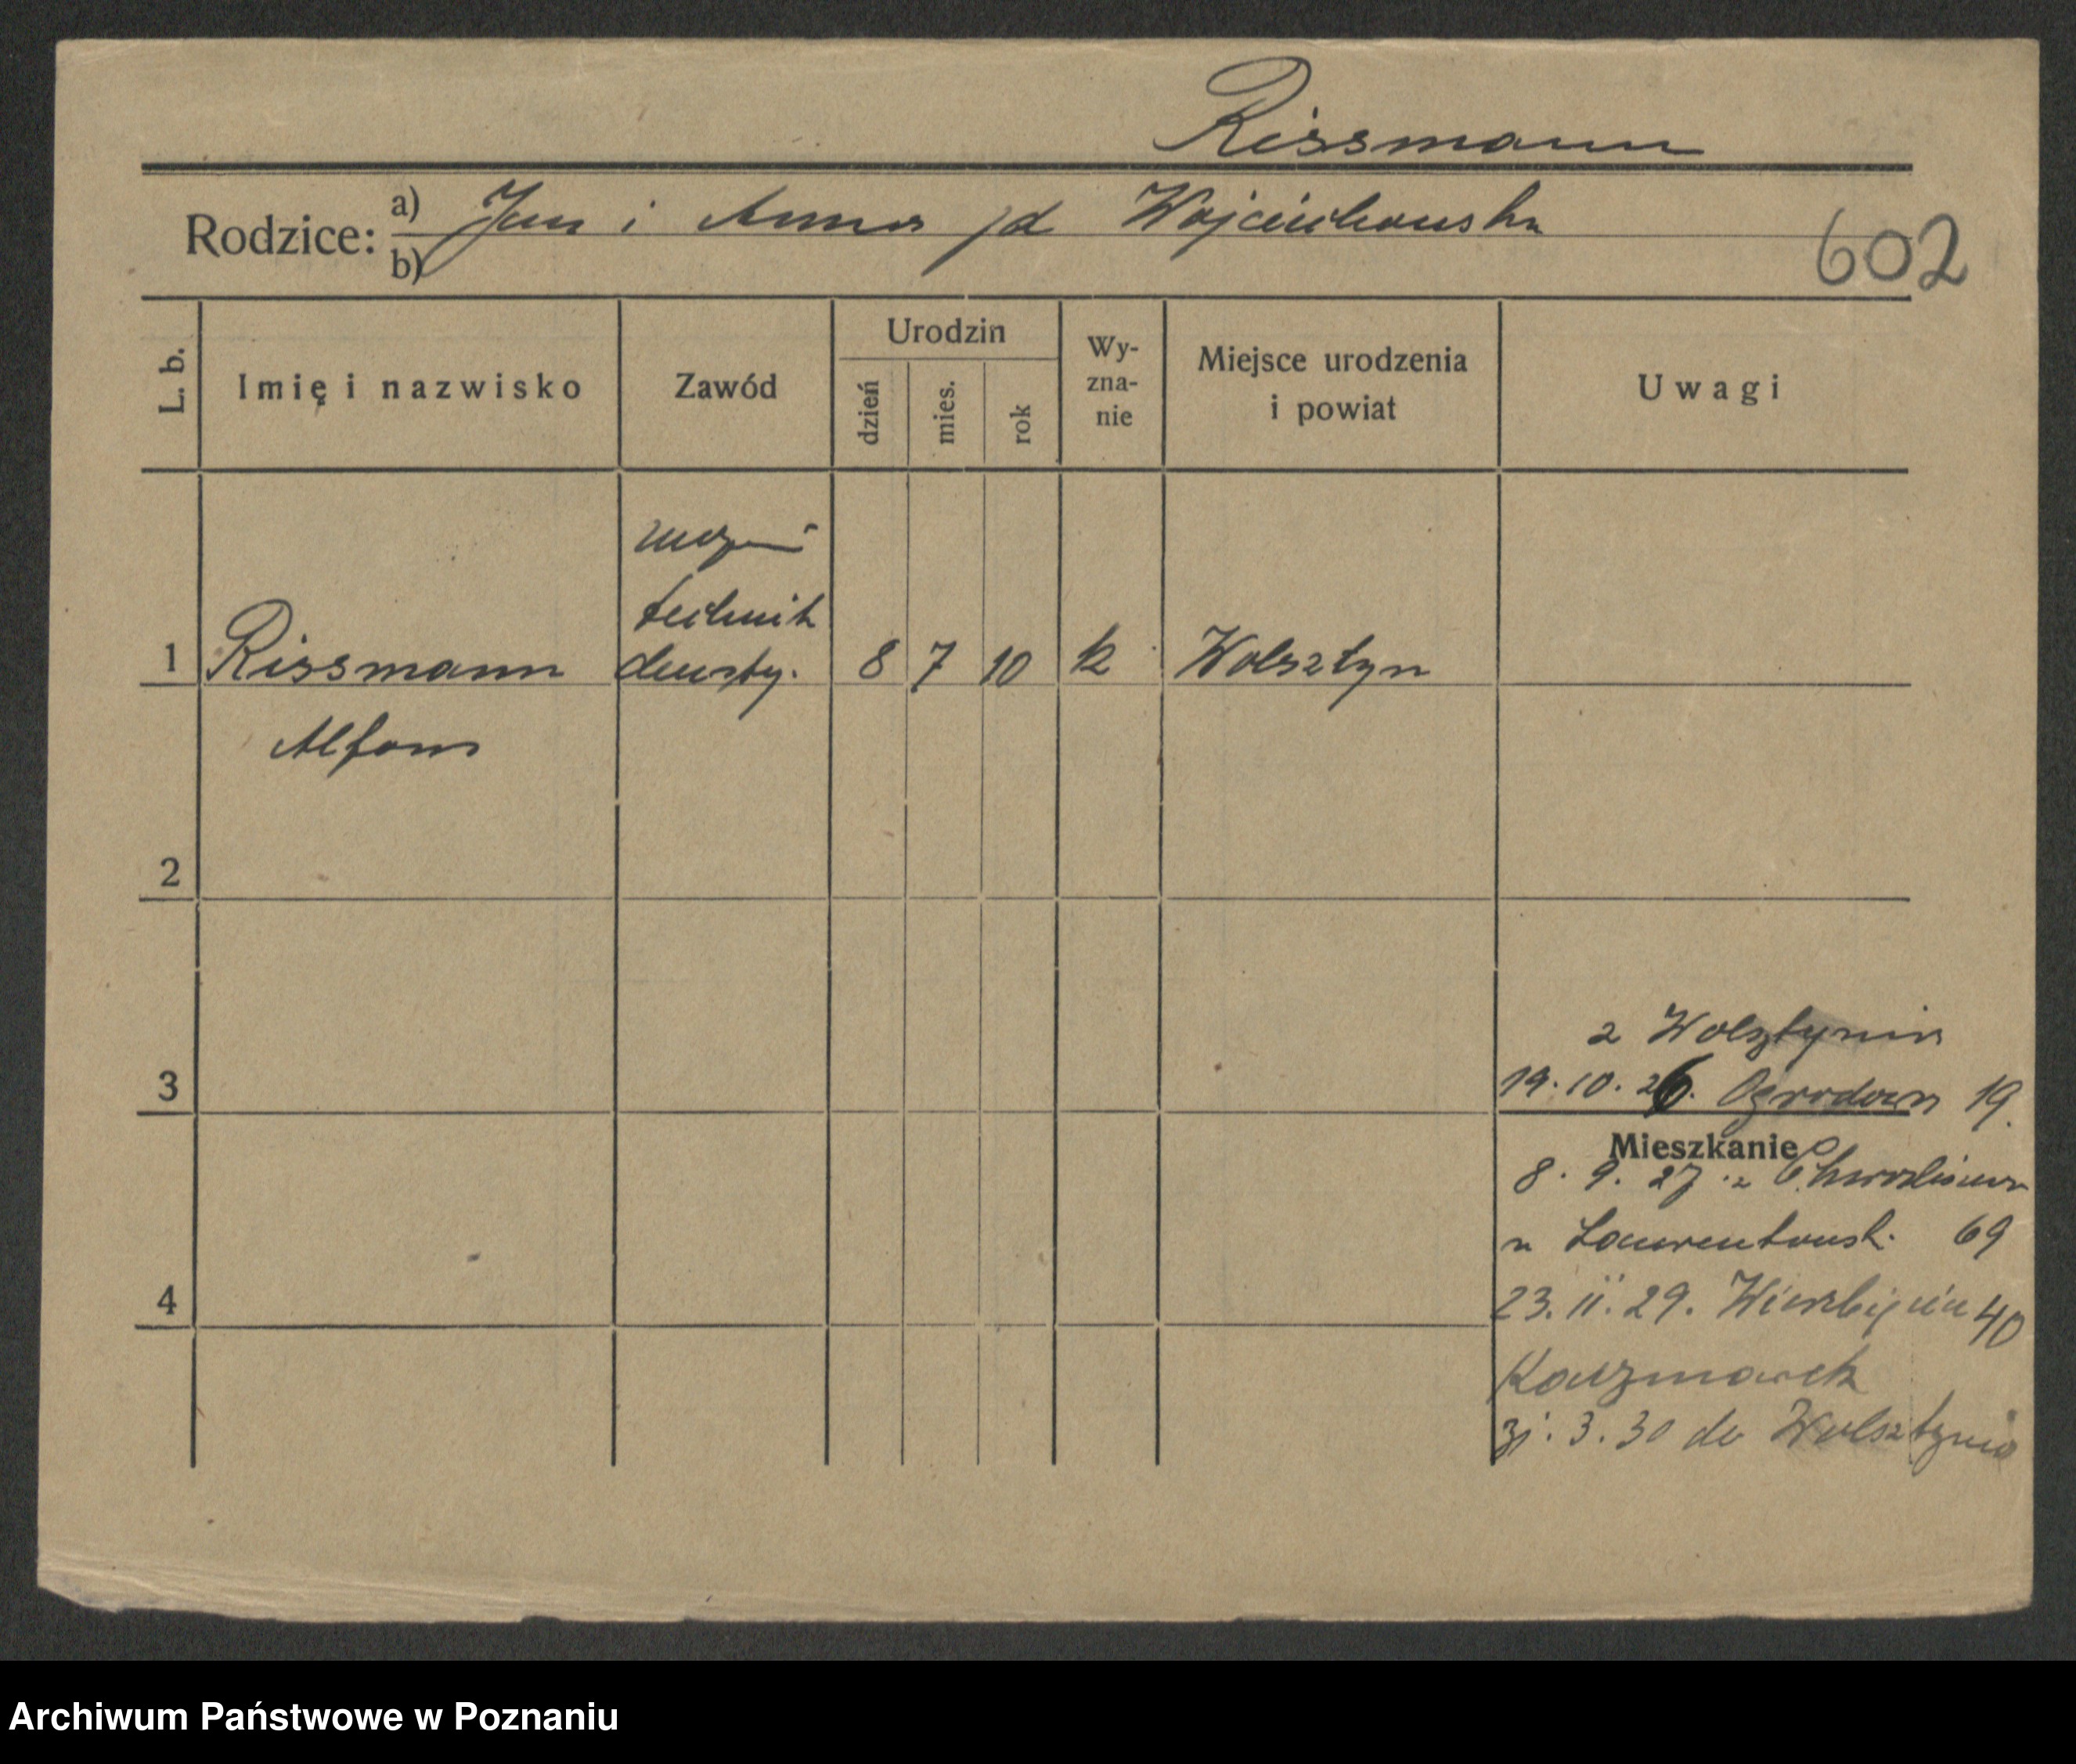 Rissmann
Rodzice: a) Jan i Anna jd Wojciechowska
b)
602
L. b.
Imię i nazwisko
Zawód
Urodzin
dzień
mies.
rok
Wy-
zna-
nie
Miejsce urodzenia
i powiat
Uwagi
uczeń
technik
1 Rissmann denty. 8 7 10 k Wolsztyn
Alfons
2
z Wolsztynia
3
19. 10. 26. Ogrodowa 19.
Mieszkanie
8. 9. 27 z
u Laurentowsk. 69
4
23. 11. 29. Wierzbięcice 40
Kaczmarek
3. 30 do Wolsztynia
Archiwum Państwowe w Poznaniu